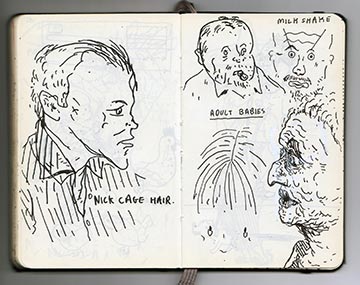 NICK CAGE HAIR.
MILK SHAKE
ADULT BABIES